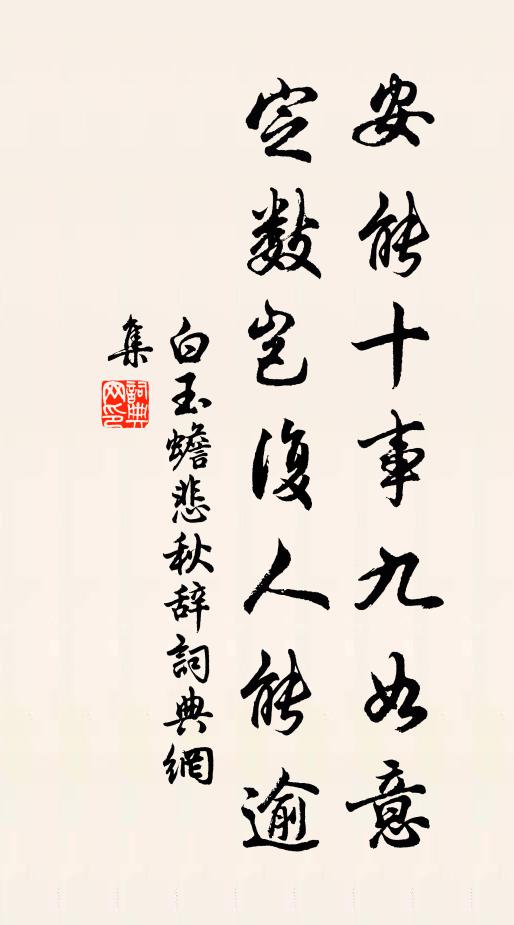 安能十事九如意
定数豈復人能逾
白玉蟾悲秋辞詞典網
集
詞典
网印